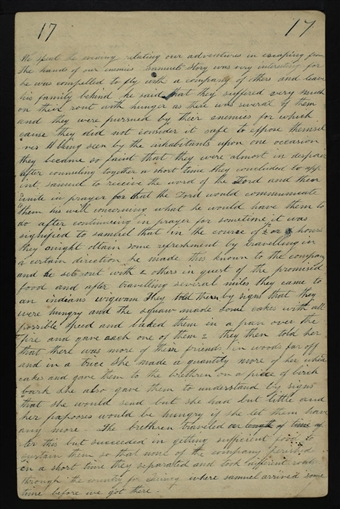 17 17
We spent the evening relating our adventures in escaping from
the hands of our enemies Samuels Story was very interesting for
he was compelled to fly with a company of others and leave
his family behind he said that they suffered very much
on their rout with hunger as there was several of them
and they were pursued by their enemies for which
cause they did not consider it safe to expose themsel
ves to being seen by the inhabitants upon one occasion
they became so faint that they were almost in despair
after counciling together a short time they concluded to app
oint samuel to receive the word of the Lord and then
unite in prayer for that the Lord would communicate
to them his will concerning what he would have them to
do after continueing in prayer for sometime it was
signifyed to samuel that in the course of 2 or 3 hours
they might obtain some refreshment by travelling in
a certain direction he made this known to the company
and he set out with 2 others in quest of the promised
food and after travelling several miles they came to
an indians wigwam they told them by signs that they
were hungry and the squaw made some cakes with all
possible speed and baked them in a pan over the
fire and gave each one of them 2 they then told her
that there was more of their friends in woods far off
and in a trice she made a quantity more of her little
cakes and gave them to the brethren on a piece of birch
bark she also gave them to understand by signs
that she would send but she had but little and
her papooses would be hungry if she let them have
any more The brethren traveled
for this but succeeded in getting sufficient food to
sustain them so that none of the company perished
in a short time they separated and took different ways
through the country for where samuel arrived some
time before we got there